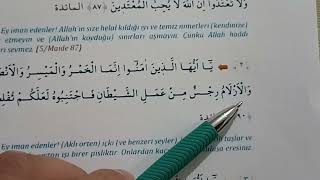 وَلَا تَعْتَدُوا إِنَّ اللَّهَ لَا يُحِبُّ الْمُعْتَدِينَ ﴿٨٧﴾ المائدة
Ey iman edenler! Allah'ın size helal kıldığı iyi ve temiz nimetleri (kendinize)
etmeyin ve (Allah'ın koyduğu) sınırları aşmayın. Çünkü Allah haddi
sevmez. [5/Maide 87]
يَا أَيُّهَا الَّذِينَ آمَنُوا إِنَّمَا الْخَمْرُ وَالْمَيْسِرُ وَالْأَنْصَ
وَالْأَزْلَامُ رِجْسٌ مِنْ عَمَلِ الشَّيْطَانِ فَاجْتَنِبُوهُ لَعَلَّكُمْ تُفْلِ
Ey iman edenler! (Aklı örten) içki (ve benzeri şeyler)
tan işi birer pisliktir. Onlardan kaç
eresiniz.